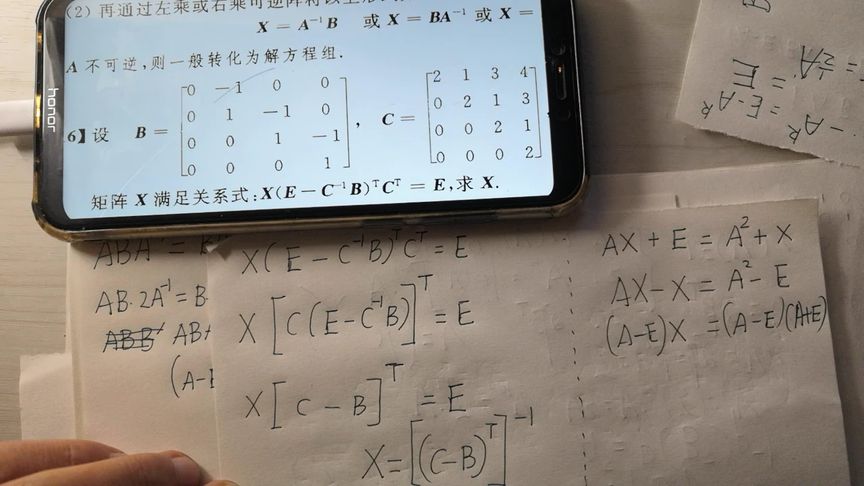 (2) 再通过左乘或右乘可逆阵将以上形式
X = A⁻¹B 或 X = BA⁻¹ 或 X =
A 不可逆,则一般转化为解方程组.
6】设 B = [0 -1 0 0; 0 1 -1 0; 0 0 1 -1; 0 0 0 1], C = [2 1 3 4; 0 2 1 3; 0 0 2 1; 0 0 0 2].
矩阵 X 满足关系式:X(E-C⁻¹B)ᵀCᵀ = E,求 X.
honor
ABA⁻¹ =
AB·2A⁻¹=B
AB
(A-E
X(E-C⁻¹B)ᵀCᵀ=E
X[C(E-C⁻¹B)]ᵀ=E
X[C-B]ᵀ=E
X=[(C-B)ᵀ]⁻¹
AX+E=A²+X
AX-X=A²-E
(A-E)X=(A-E)(A+E)
= E
= E-A